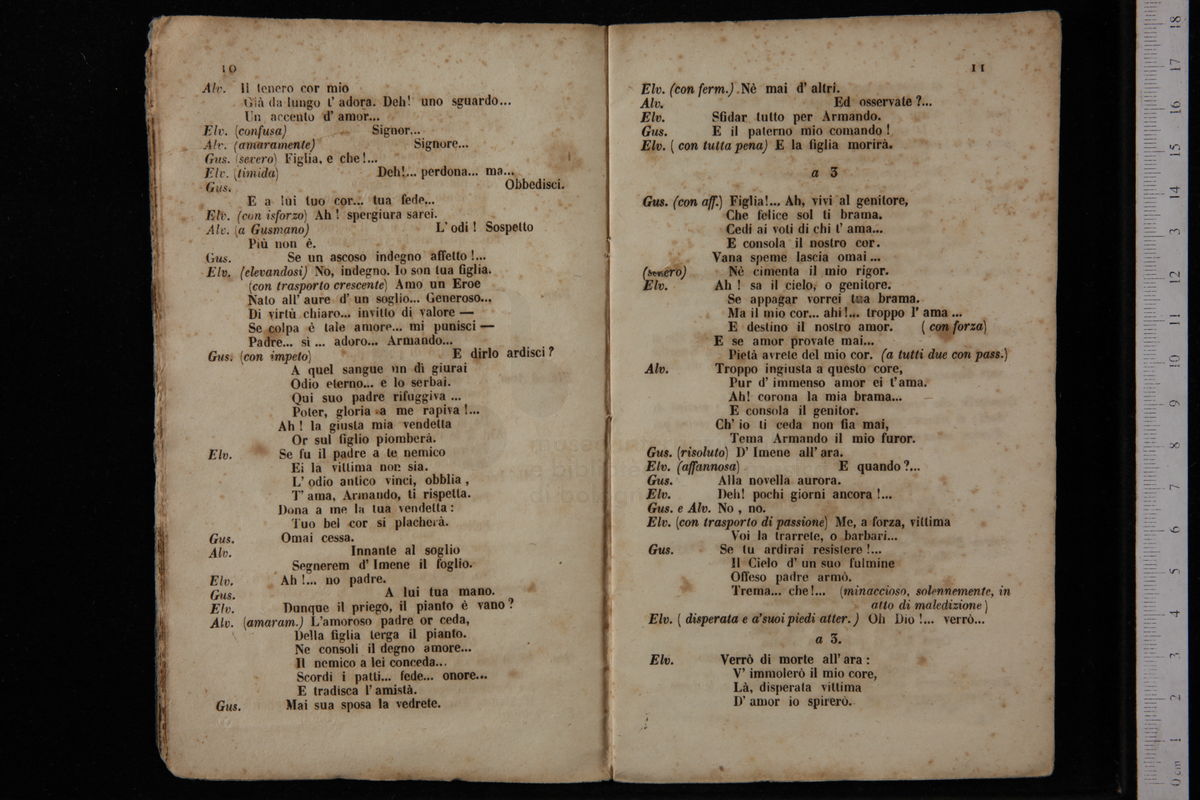 10
Alv. Il tenero cor mio
Già da lungo t' adora. Deh! uno sguardo...
Un accento d' amor...
Elv. (confusa) Signor...
Alv. (amaramente) Signore...
Gus. (severo) Figlia, e che!...
Elv. (timida) Deh!... perdona... ma...
Gus. Obbedisci.
E a lui tuo cor... tua fede...
Elv. (con isforzo) Ah! spergiura sarei.
Alv. (a Gusmano) L' odi! Sospetto
Più non è.
Gus. Se un ascoso indegno affetto!...
Elv. (elevandosi) No, indegno. Io son tua figlia.
(con trasporto crescente) Amo un Eroe
Nato all' aure d' un soglio... Generoso...
Di virtù chiaro... invitto di valore —
Se colpa è tale amore... mi punisci —
Padre... si ... adoro... Armando...
Gus. (con impeto) E dirlo ardisci?
A quel sangue un dì giurai
Odio eterno... e lo serbai.
Qui suo padre rifuggiva ...
Poter, gloria a me rapiva!...
Ah! la giusta mia vendetta
Or sul figlio piomberà.
Elv. Se fu il padre a te nemico
Ei la vittima non sia.
L' odio antico vinci, obblia,
T' ama, Armando, ti rispetta.
Dona a me la tua vendetta:
Tuo bel cor si placherà.
Gus. Omai cessa.
Alv. Innante al soglio
Segnerem d' Imene il foglio.
Elv. Ah!... no padre.
Gus. A lui tua mano.
Elv. Dunque il priego, il pianto è vano?
Alv. (amaram.) L'amoroso padre or ceda,
Della figlia terga il pianto.
Ne consoli il degno amore...
Il nemico a lei conceda...
Scordi i patti... fede... onore...
E tradisca l' amistà.
Gus. Mai sua sposa la vedrete.
11
Elv. (con ferm.) Nè mai d' altri.
Alv. Ed osservate?...
Elv. Sfidar tutto per Armando.
Gus. E il paterno mio comando!
Elv. (con tutta pena) E la figlia morirà.
a 3
Gus. (con aff.) Figlia!... Ah, vivi al genitore,
Che felice sol ti brama.
Cedi ai voti di chi t' ama...
E consola il nostro cor.
Vana speme lascia omai...
(severo) Nè cimenta il mio rigor.
Elv. Ah! sa il cielo, o genitore.
Se appagar vorrei tua brama.
Ma il mio cor... ahi!... troppo l' ama ...
E destino il nostro amor. (con forza)
E se amor provate mai...
Pietà avrete del mio cor. (a tutti due con pass.)
Alv. Troppo ingiusta a questo core,
Pur d' immenso amor ei t'ama.
Ah! corona la mia brama...
E consola il genitor.
Ch' io ti ceda non fia mai,
Tema Armando il mio furor.
Gus. (risoluto) D' Imene all' ara.
Elv. (affannosa) E quando?...
Gus. Alla novella aurora.
Elv. Deh! pochi giorni ancora!...
Gus. e Alv. No, no.
Elv. (con trasporto di passione) Me, a forza, vittima
Voi la trarrete, o barbari...
Gus. Se tu ardirai resistere!...
Il Cielo d' un suo fulmine
Offeso padre armò.
Trema... che!... (minaccioso, solennemente, in
atto di maledizione)
Elv. (disperata e a'suoi piedi atter.) Oh Dio!... verrò...
a 3.
Elv. Verrò di morte all' ara:
V' immolerò il mio core,
Là, disperata vittima
D' amor io spirerò.
0 cm 1 2 3 4 5 6 7 8 9 10 11 12 13 14 15 16 17 18